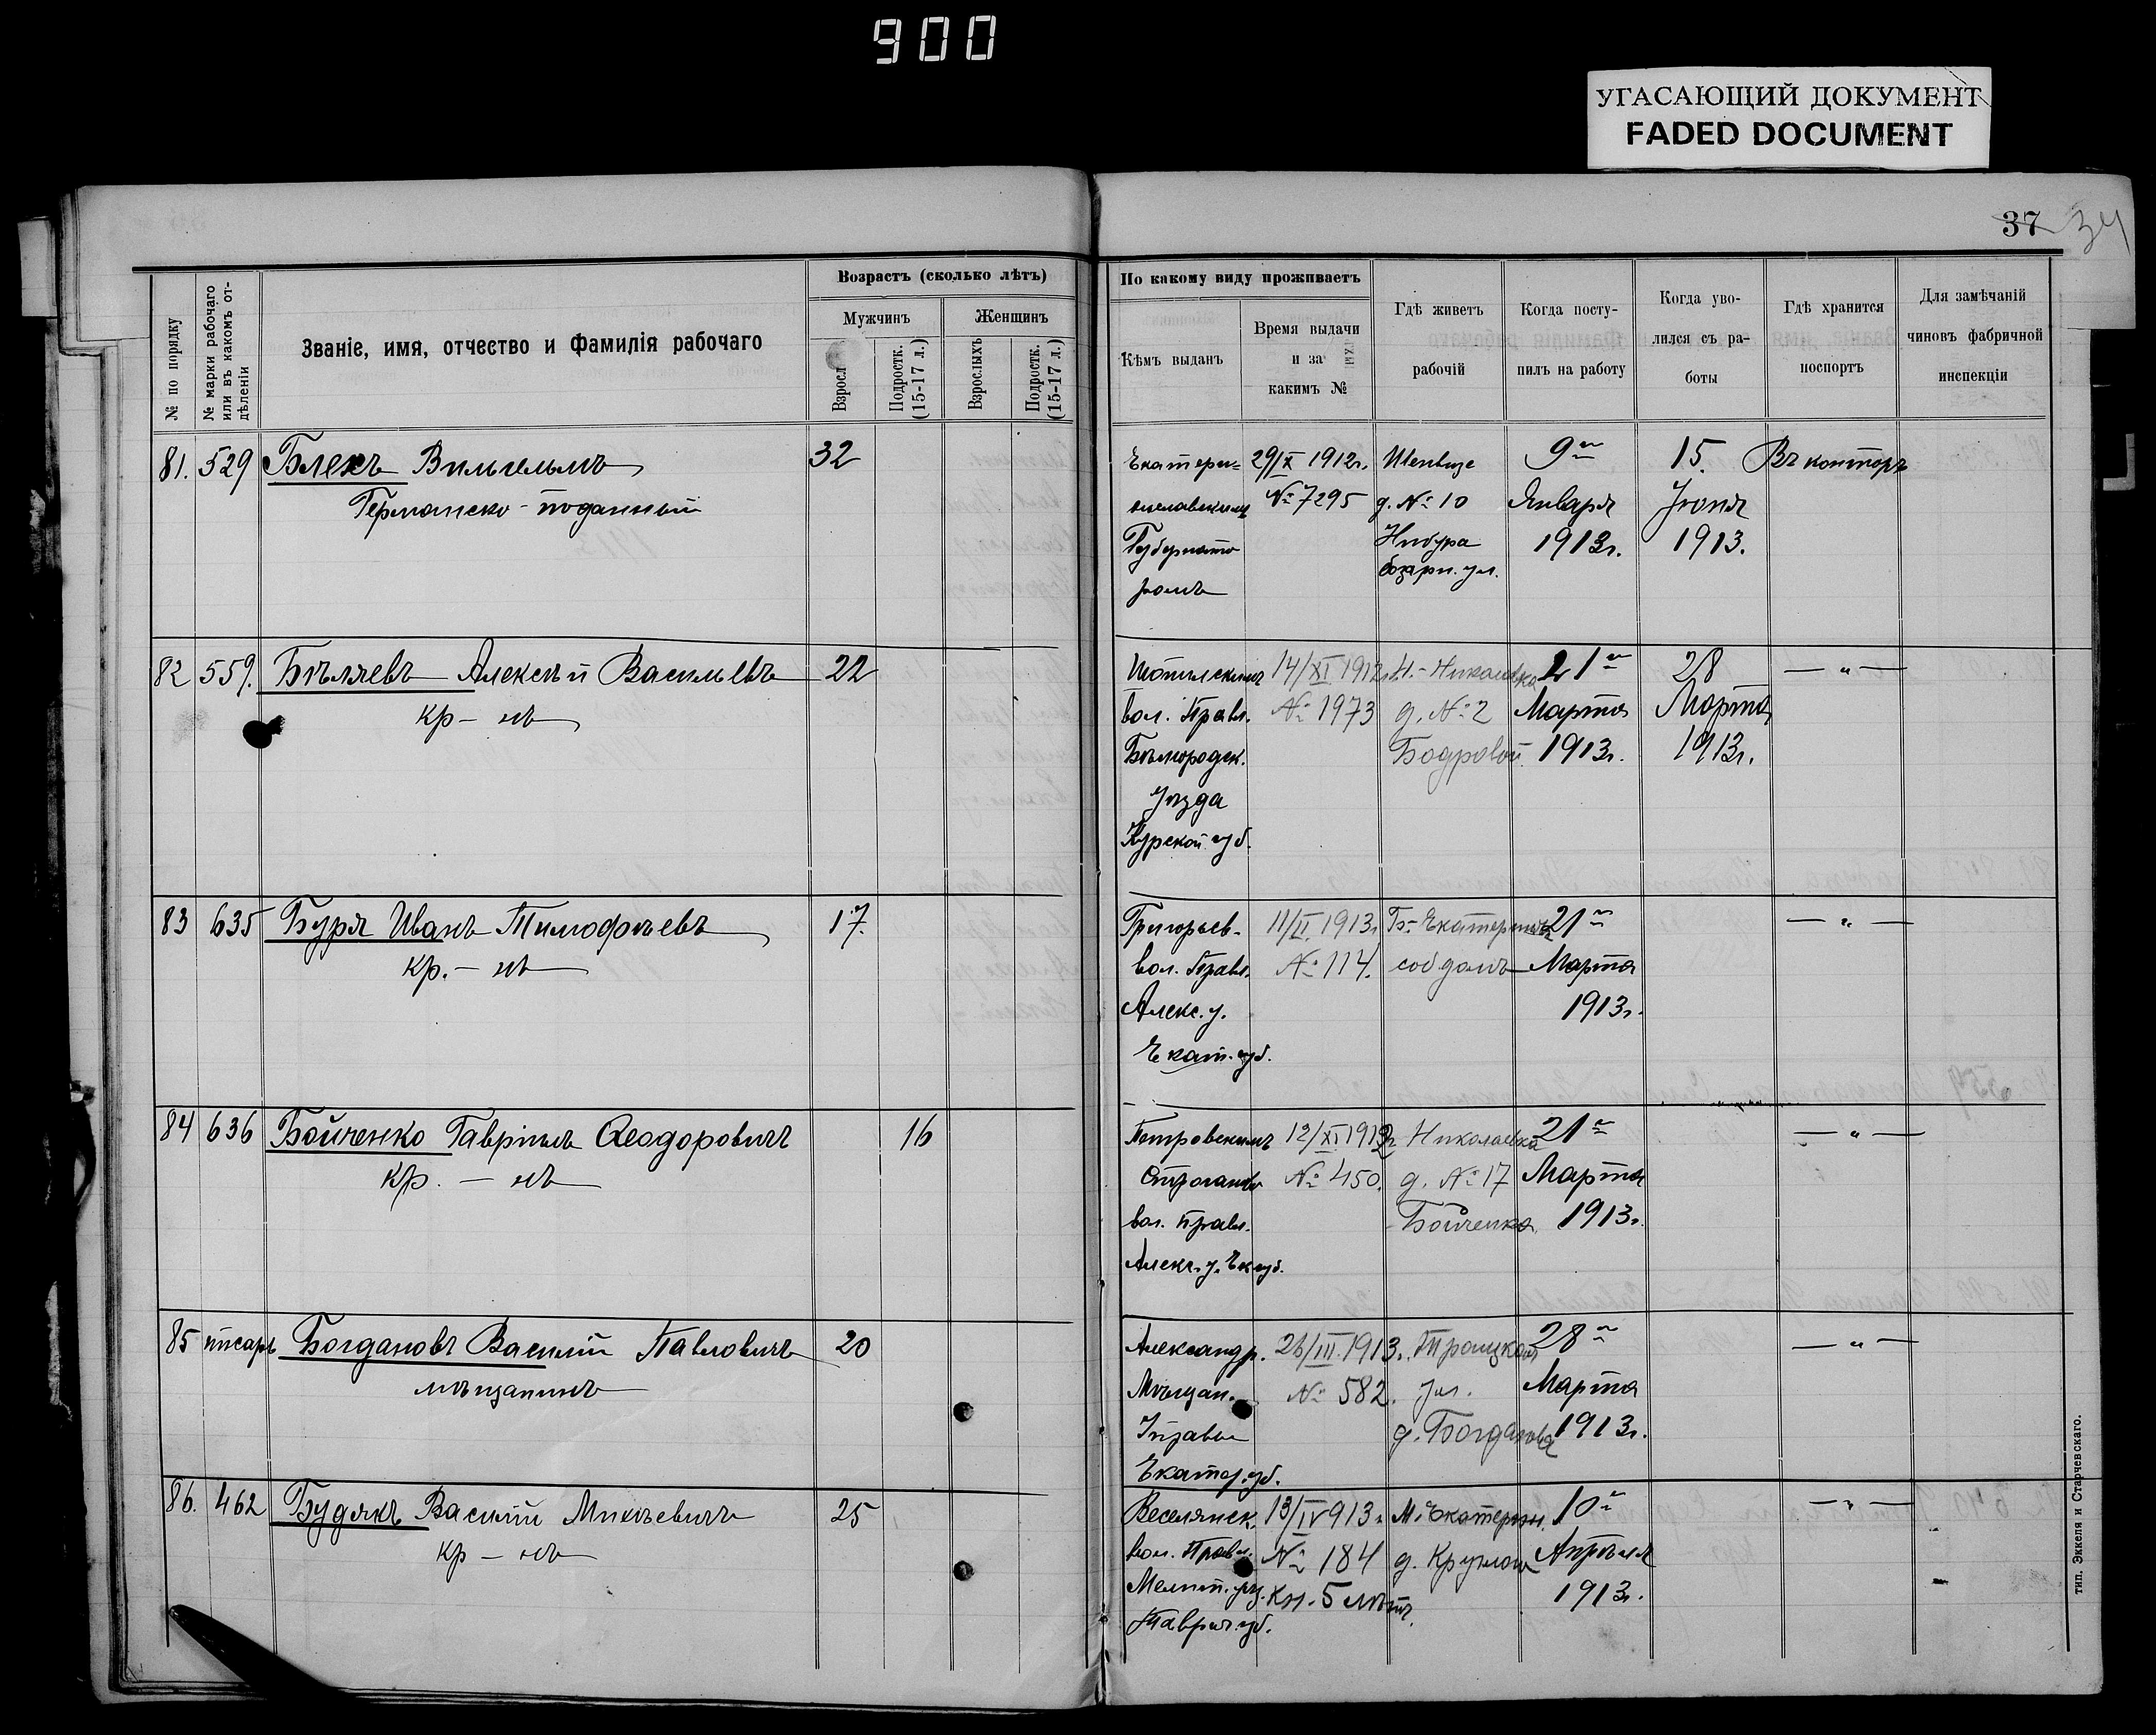 900
УГАСАЮЩИЙ ДОКУМЕНТ
FADED DOCUMENT
37
34
№ по порядку
№ марки рабочаго
или въ какомъ от-
дѣленіи
Званіе, имя, отчество и фамилія рабочаго
Возрастъ (сколько лѣтъ)
Мужчинъ
Женщинъ
Взросл
Подростк.
(15-17 л.)
Взрослыхъ
Подростк.
(15-17 л.)
По какому виду проживаетъ
Кѣмъ выданъ
Время выдачи
и за
какимъ №
Гдѣ живетъ
рабочій
Когда посту-
пилъ на работу
Когда уво-
лился съ ра-
боты
Гдѣ хранится
поспортъ
Для замѣчаній
чиновъ фабричной
инспекціи
81. 529 Блекъ Вильгельмъ 32
Германско-поданный
Екатери-
нославскимъ
Губернато
ромъ
29/IX 1912г.
№ 7295
д. № 10
Нибура
базарн. ул.
9го
Января
1913г.
15.
Іюня
1913.
Въ конторѣ
82 559. Бѣляевъ Алексѣй Васильевъ 22
кр-нъ
вол. Правл.
Бѣлгородск.
Уѣзда
Курской губ.
14/XI 1912г.
№ 1973
Н.-Николаевка
д. № 2
Бодровой
21го
Марта
1913г.
28
Марта
1913г.
— „ —
83 635 Буря Иванъ Тимофѣевъ 17.
кр.-нъ
Григорьев-
вол. Правл.
Алекс. у.
Екат. губ.
11/II 1913г.
№ 114.
Б-Екатерин
соб домъ
21го
Марта
1913г.
— „ —
84 636 Бойченко Гавріилъ Ѳеодоровичъ 16
кр. - нъ
Петровскимъ
вол. правл.
Алекс. у. Ек губ.
12/XI 1912г
№ 450.
Николаевка
д. № 17
Бойченка
21го
Марта
1913г.
— „ —
85 писарь Богдановъ Василій Павловичъ 20
мѣщанинъ
Александр.
Мѣщан.
Управы
Екатер. губ.
26/III 1913г.
№ 582.
Троицкая
ул.
д. Богданова
28го
Марта
1913г.
— „ —
86. 462 Будякъ Василій Михѣевичъ 25
кр - нъ
Веселянск.
вол. Правл.
Мелит. уѣз.
Таврич. губ.
13/IV 913г.
№ 184
Кн. 5 лѣтн.
М.-Екатерин.
д.
10го
Апрѣля
1913г.
— „ —
тип. Эккеля и Старчевскаго.